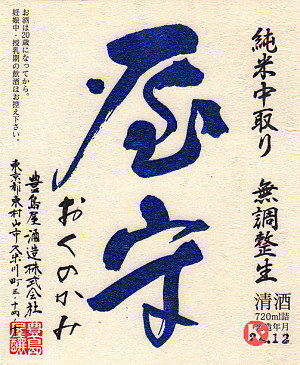 純米中取り　無調整生
屋守
おくのかみ
お酒は20歳になってから。
妊娠中・授乳期の飲酒はお控え下さい。
豊島屋酒造株式会社
東京都東村山市久米川町三-十四-十
清酒
720ml詰
製造年月
24.12
豊島
屋醸